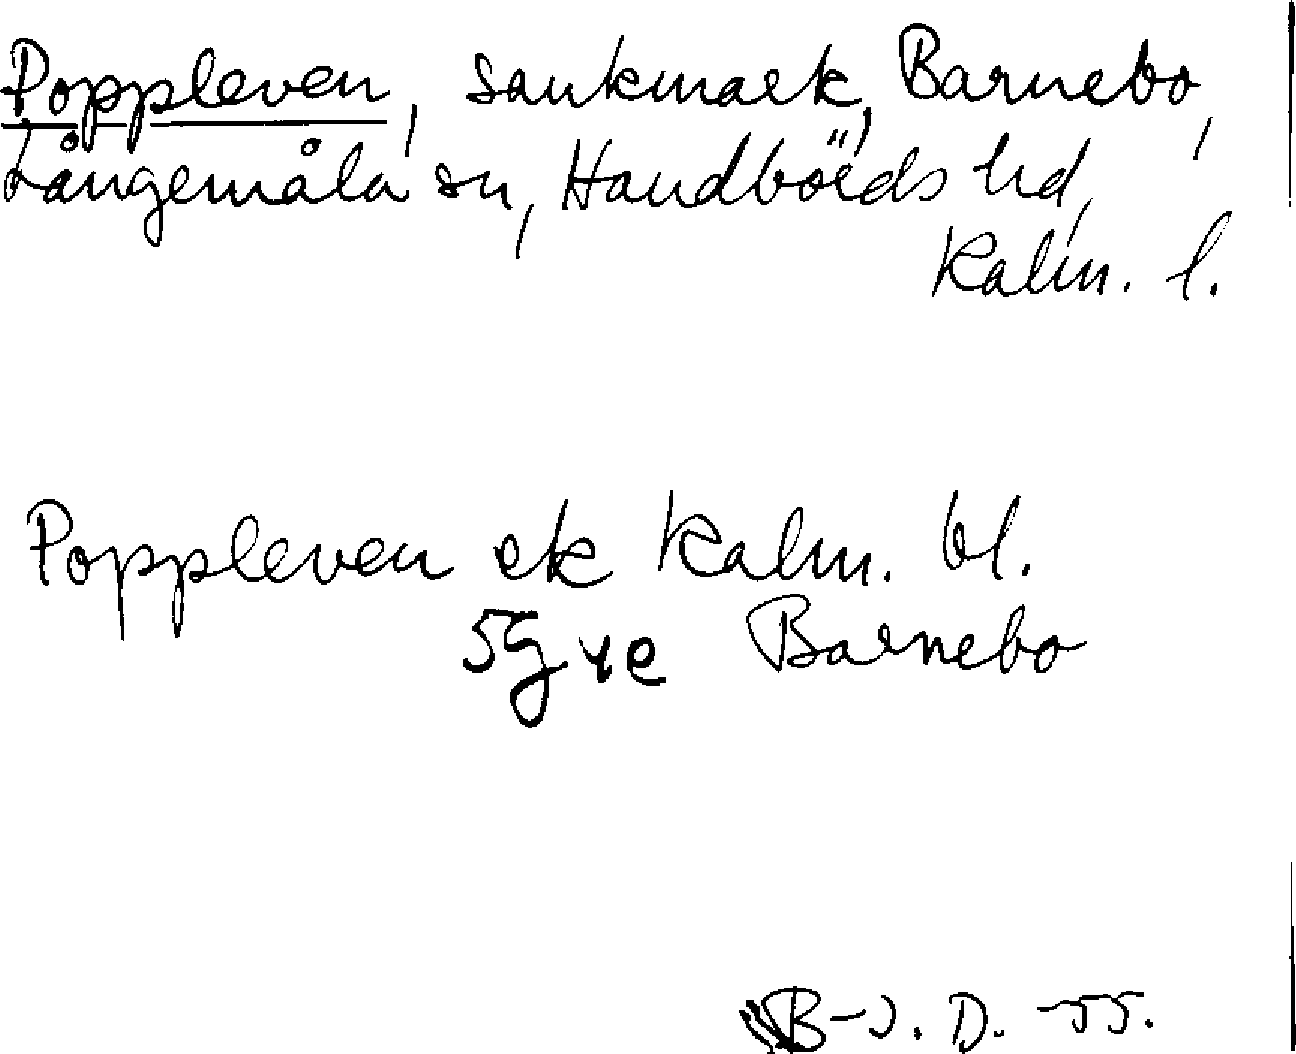 Poppleven, sankmark, Barnebo,
Långemåla sn, Handbörds hd,
Kalm. l.
Poppleven ek Kalm. bl.
5G ye Barnebo
B-J. D. -55.